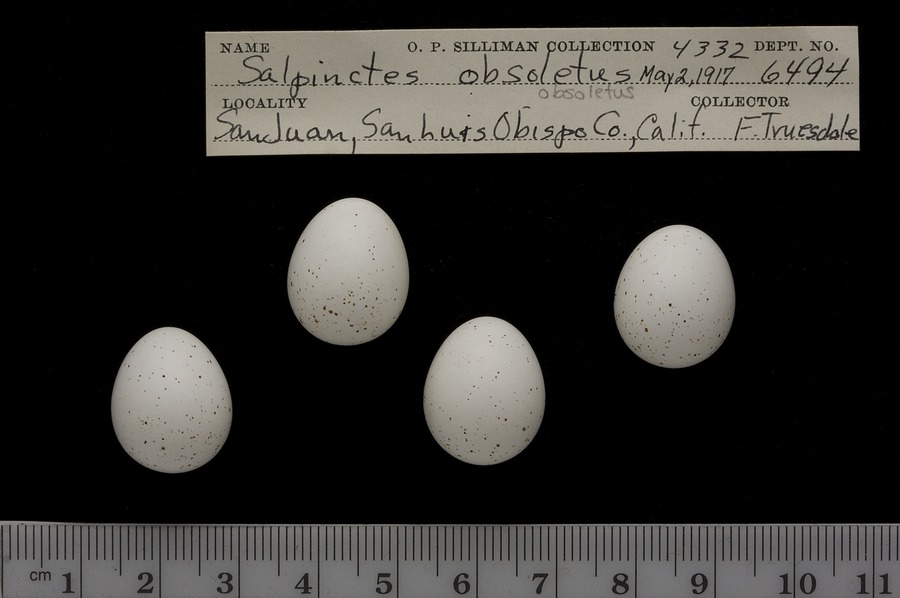 NAME O. P. SILLIMAN COLLECTION 4332 DEPT. NO.
Salpinctes obsoletus May 2, 1917 6494
obsoletus
LOCALITY COLLECTOR
San Juan, San Luis Obispo Co., Calif. F. Truesdale
cm 1 2 3 4 5 6 7 8 9 10 11